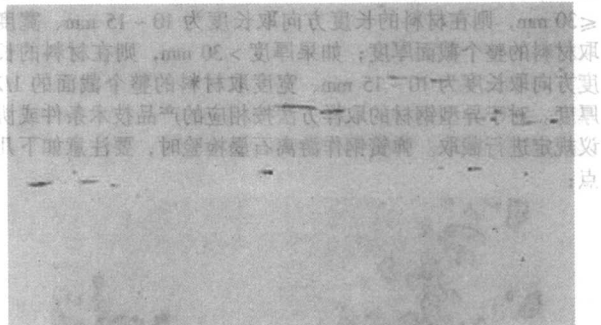 ≤30 mm,则在材料的长度方向取长度为 10~15 mm、宽度
取材料的整个截面厚度;如果厚度>30 mm,则在材料的长
度方向取长度为 10~15 mm、宽度取材料的整个截面的 1/2
厚度。对于异型钢材的取样方法按相应的产品技术条件或协
议规定进行截取。弹簧钢作游离石墨检验时,要注意如下几
点: